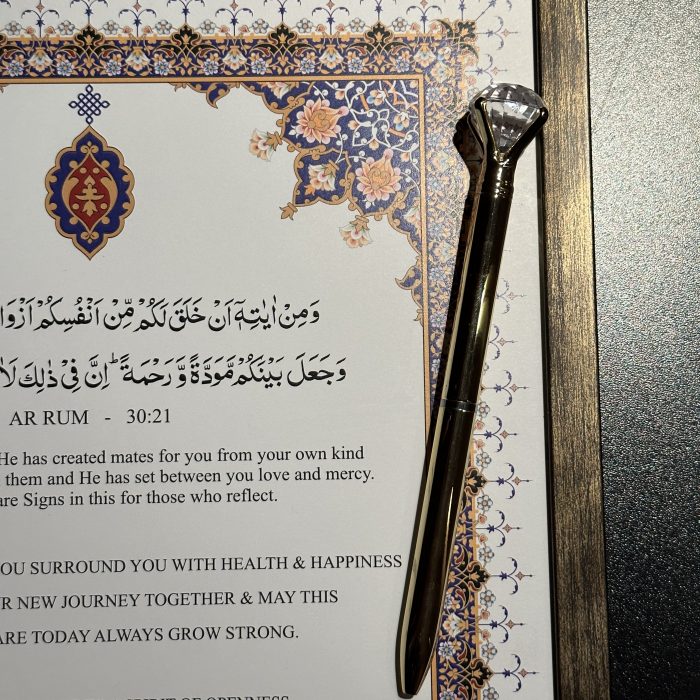 وَمِنْ اٰيٰتِهٖٓ اَنْ خَلَقَ لَكُمْ مِّنْ اَنْفُسِكُمْ
وَجَعَلَ بَيْنَكُمْ مَّوَدَّةً وَّرَحْمَةً ؕ اِنَّ فِيْ ذٰلِكَ
AR RUM - 30:21
He has created mates for you from your own kind
them and He has set between you love and mercy.
are Signs in this for those who reflect.
OU SURROUND YOU WITH HEALTH & HAPPINESS
NEW JOURNEY TOGETHER & MAY THIS
ARE TODAY ALWAYS GROW STRONG.